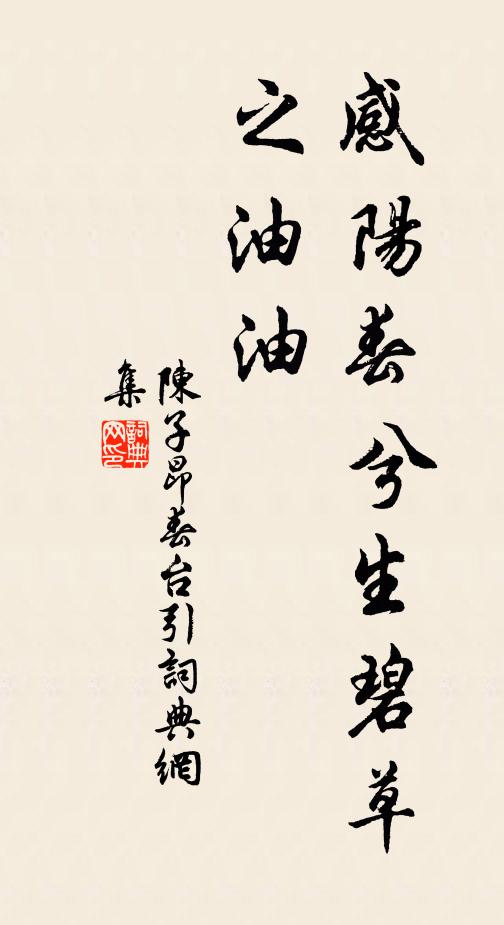 感陽春兮生碧草
之油油
陳子昂春台引詞典網
集
詞典网印